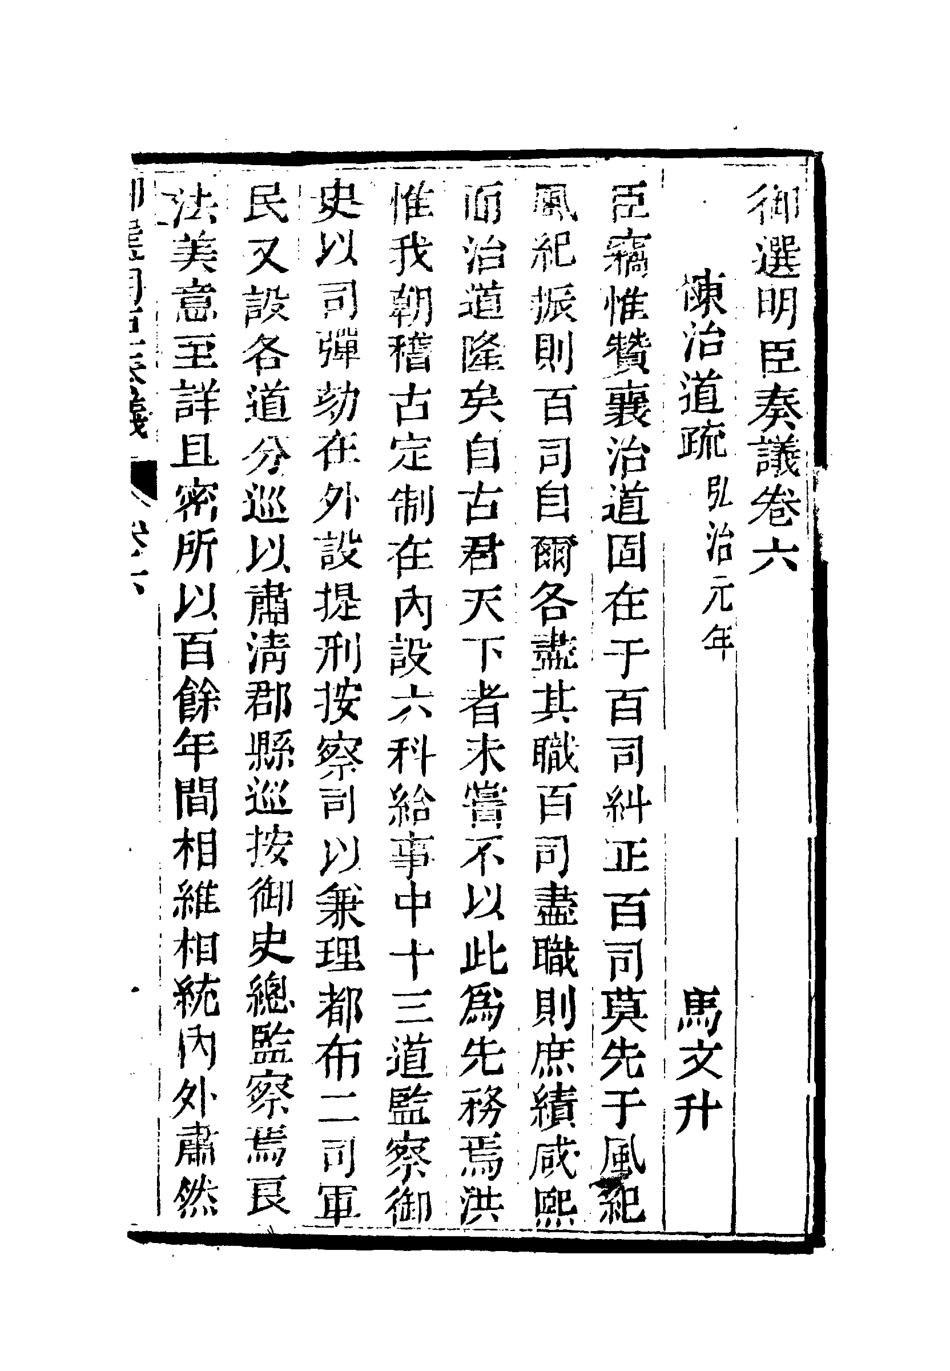 御選明臣奏議卷六
陳治道疏 弘治元年 馬文升
臣竊惟贊襄治道固在于百司糾正百司莫先于風紀
風紀振則百司自爾各盡其職百司盡職則庶績咸熙
而治道隆矣自古君天下者未嘗不以此爲先務焉洪
惟我朝稽古定制在內設六科給事中十三道監察御
史以司彈劾在外設提刑按察司以兼理都布二司軍
民又設各道分巡以肅淸郡縣巡按御史總監察焉良
法美意至詳且密所以百餘年間相維相統內外肅然
御選明臣奏議 卷六